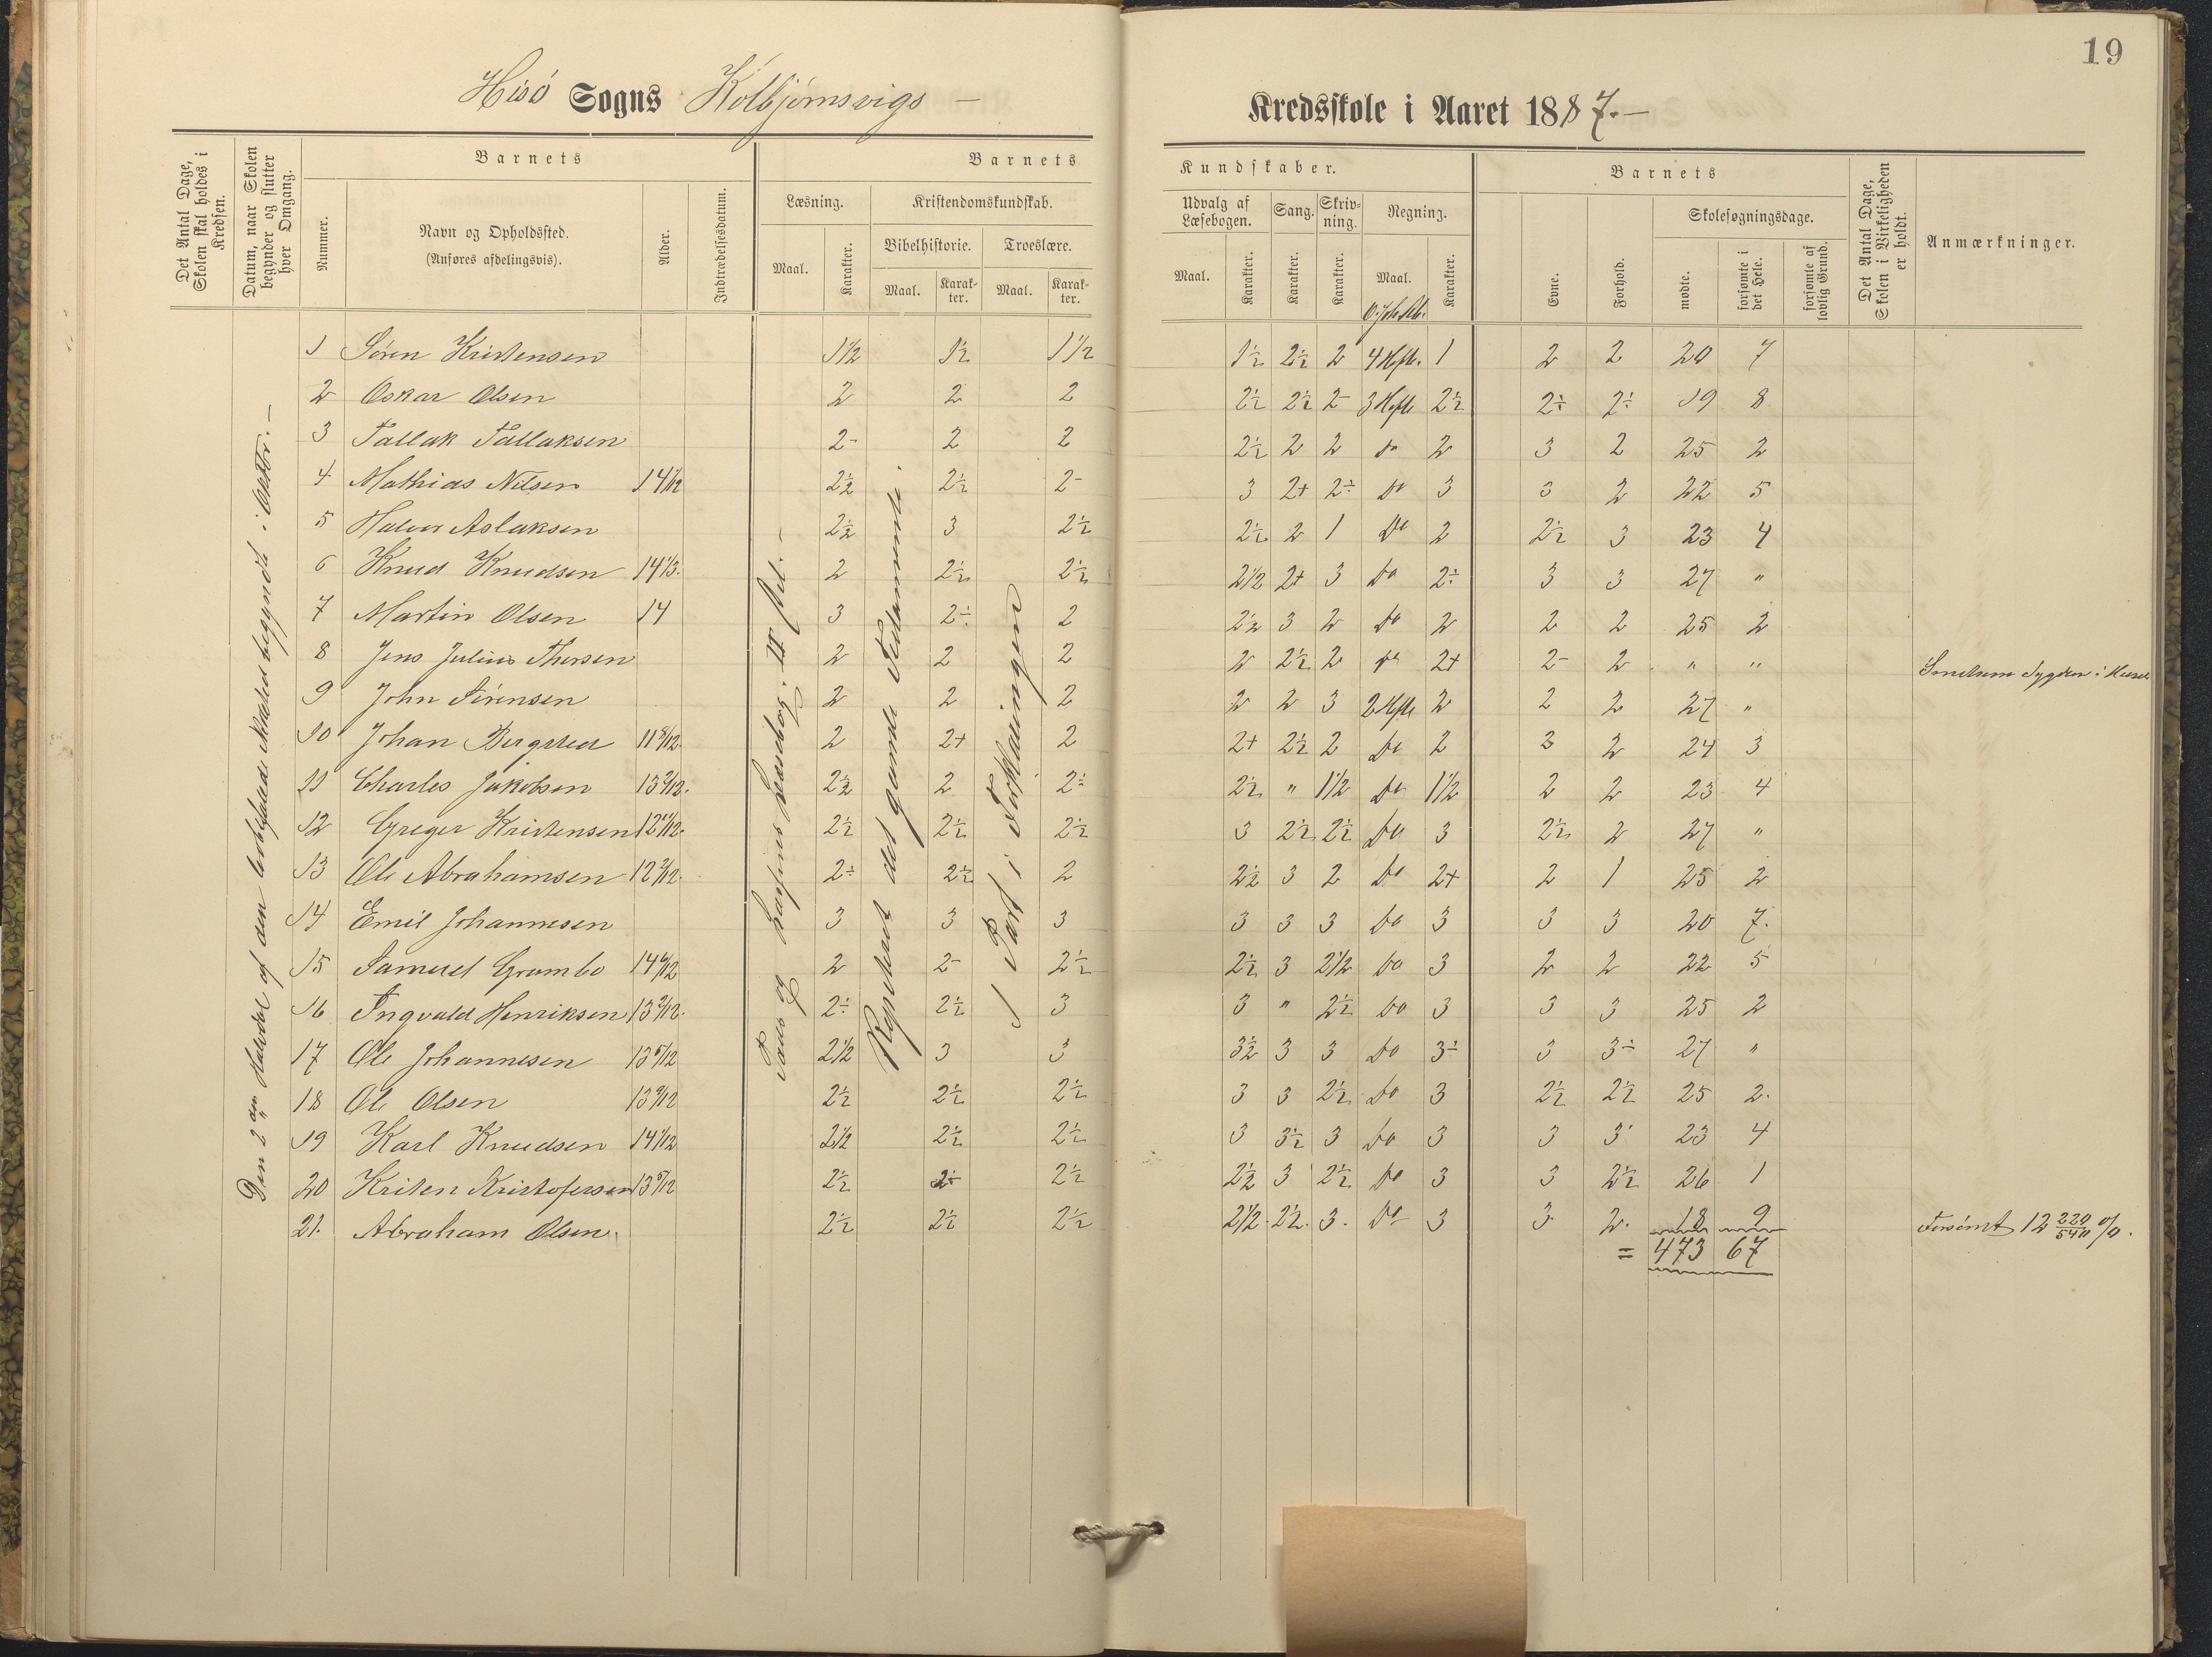 19
Hisö Sogns Kolbjörnsvigs –
Kredsskole i Aaret 1887.–
Det Antal Dage, Skolen skal holdes i Kredsen.
Datum, naar Skolen begynder og slutter hver Omgang.
Barnets
Nummer.
Navn og Opholdssted.
(Anføres afdelingsvis).
Alder.
Indtrædelsesdatum.
Barnets
Læsning.
Maal.
Karakter.
Kristendomskundskab.
Bibelhistorie.
Maal.
Karakter.
Troeslære.
Maal.
Karakter.
Kundskaber.
Udvalg af Læsebogen.
Maal.
Karakter.
Sang.
Karakter.
Skrivning.
Karakter.
Regning.
Maal.
Karakter.
Barnets
Evne.
Forhold.
Skolesøgningsdage.
mødte.
forsømte i det Hele.
forsømte af lovlig Grund.
Det Antal Dage, Skolen i Virkeligheden er holdt.
Anmærkninger.
Den 2den Halvdel af den lovbefalede Skoletid begyndt i Oktbr. –
Læsebog. III
Repeteret det gamle Testamente.
1 Part i Forklaringen
1 Sören Kristensen 1½ 1½ 1½ 1½ 2½ 2 4 Hfte. 1 2 2 20 7
2 Oskar Olsen 2 2 2 2½ 2½ 2- 3 Hfte 2½ 2÷ 2÷ 19 8
3 Tallak Tallaksen 2- 2 2 2½ 2 2 do 2 3 2 25 2
4 Mathias Nilsen 14 1/12 2½ 2½ 2- 3 2+ 2÷ do 3 3 2 22 5
5 Halvor Aslaksen 2½ 3 2½ 2½ 2 1 do 2 2½ 3 23 4
6 Knud Knudsen 14 1/3. 2 2½ 2½ 2½ 2+ 3 do 2÷ 3 3 27 "
7 Martin Olsen 14 3 2÷ 2 2½ 3 2 do 2 2 2 25 2
8 Jens Julius Thorsen 2 2 2 2 2½ 2 do 2+ 2- 2 " " Smitsom Sygdom i Huset
9 John Sörensen 2 2 2 2 2 3 2 Hfte 2 2 2 27 "
10 Johan Bergsted 11 8/12. 2 2+ 2 2+ 2½ 2 do 2 3 2 24 3
11 Charles Jakobsen 13 2/12. 2½ 2 2÷ 2½ " 1½ do 1½ 2 2 23 4
12 Greger Kristensen 12 11/12. 2½ 2½ 2½ 3 2½ 2½ do 3 2½ 2 27 "
13 Ole Abrahamsen 12 2/12. 2÷ 2½ 2 2½ 3 2 do 2+ 2 1 25 2
14 Emil Johannesen 3 3 3 3 3 3 do 3 3 3 20 7.
15 Samuel Grambo 14 6/12 2 2- 2½ 2½ 3 2½ do 3 2 2 22 5
16 Ingvald Henriksen 13 2/12. 2÷ 2½ 3 3 " 2½ do 3 3 3 25 2
17 Ole Johannesen 13 5/12 2½ 3 3 3½ 3 3 do 3÷ 3 3÷ 27 "
18 Ole Olsen 13 9/12 2½ 2½ 2½ 3 3 2½ do 3 2½ 2½ 25 2.
19 Karl Knudsen 14 1/12 2½ 2½ 2½ 3 3½ 3 do 3 3 3 23 4
20 Kristen Kristofersen 13 5/12 2½ 2÷ 2½ 2½ 3 2½ do 3 3 2½ 26 1
21. Abraham Olsen. 2½ 2½ 2½ 2½. 2½. 3. do 3 3. 2. 18 9 Forsömt 12 220/540 %.
= 473 67